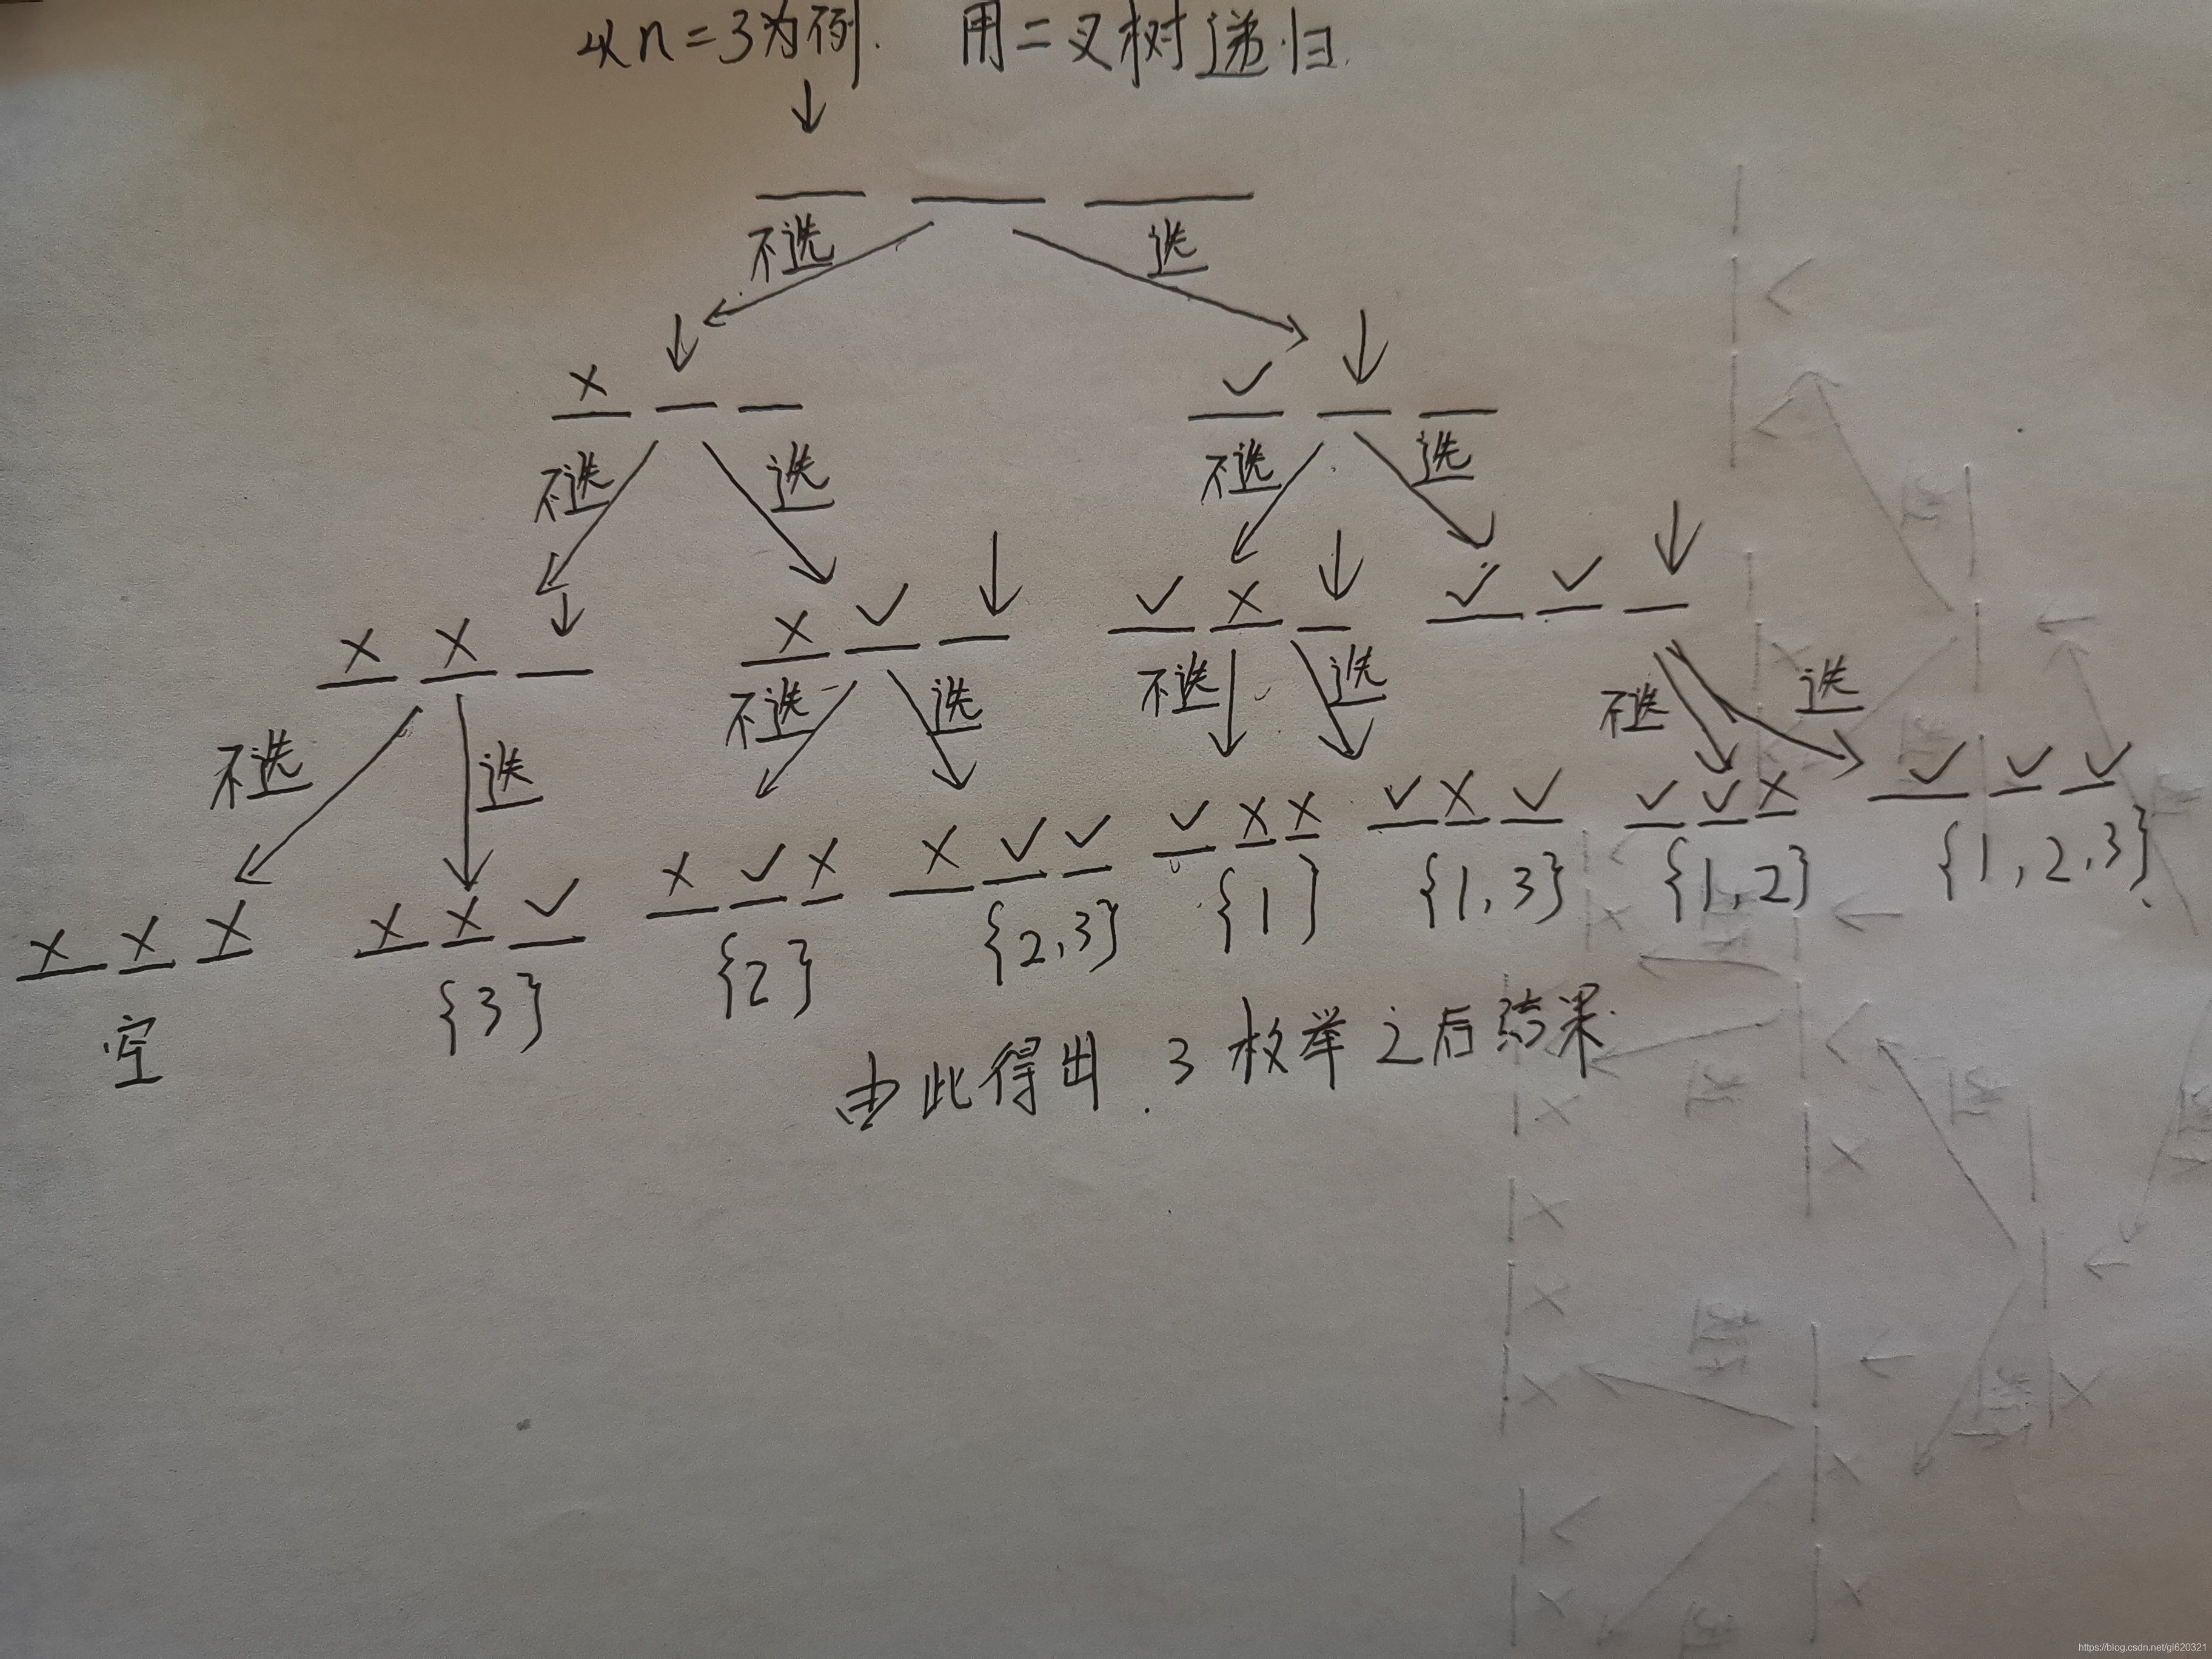 以n=3为例. 用二叉树递归.
不选 选
× ✓
不选 选 不选 选
× × × ✓ ✓ × ✓ ✓
不选 选 不选 选 不选 选 不选 选
× × × × × ✓ × ✓ × × ✓ ✓ ✓ × × ✓ × ✓ ✓ ✓ × ✓ ✓ ✓
空 {3} {2} {2,3} {1} {1,3} {1,2} {1,2,3}
由此得出.3枚举之后结果.
https://blog.csdn.net/gl620321